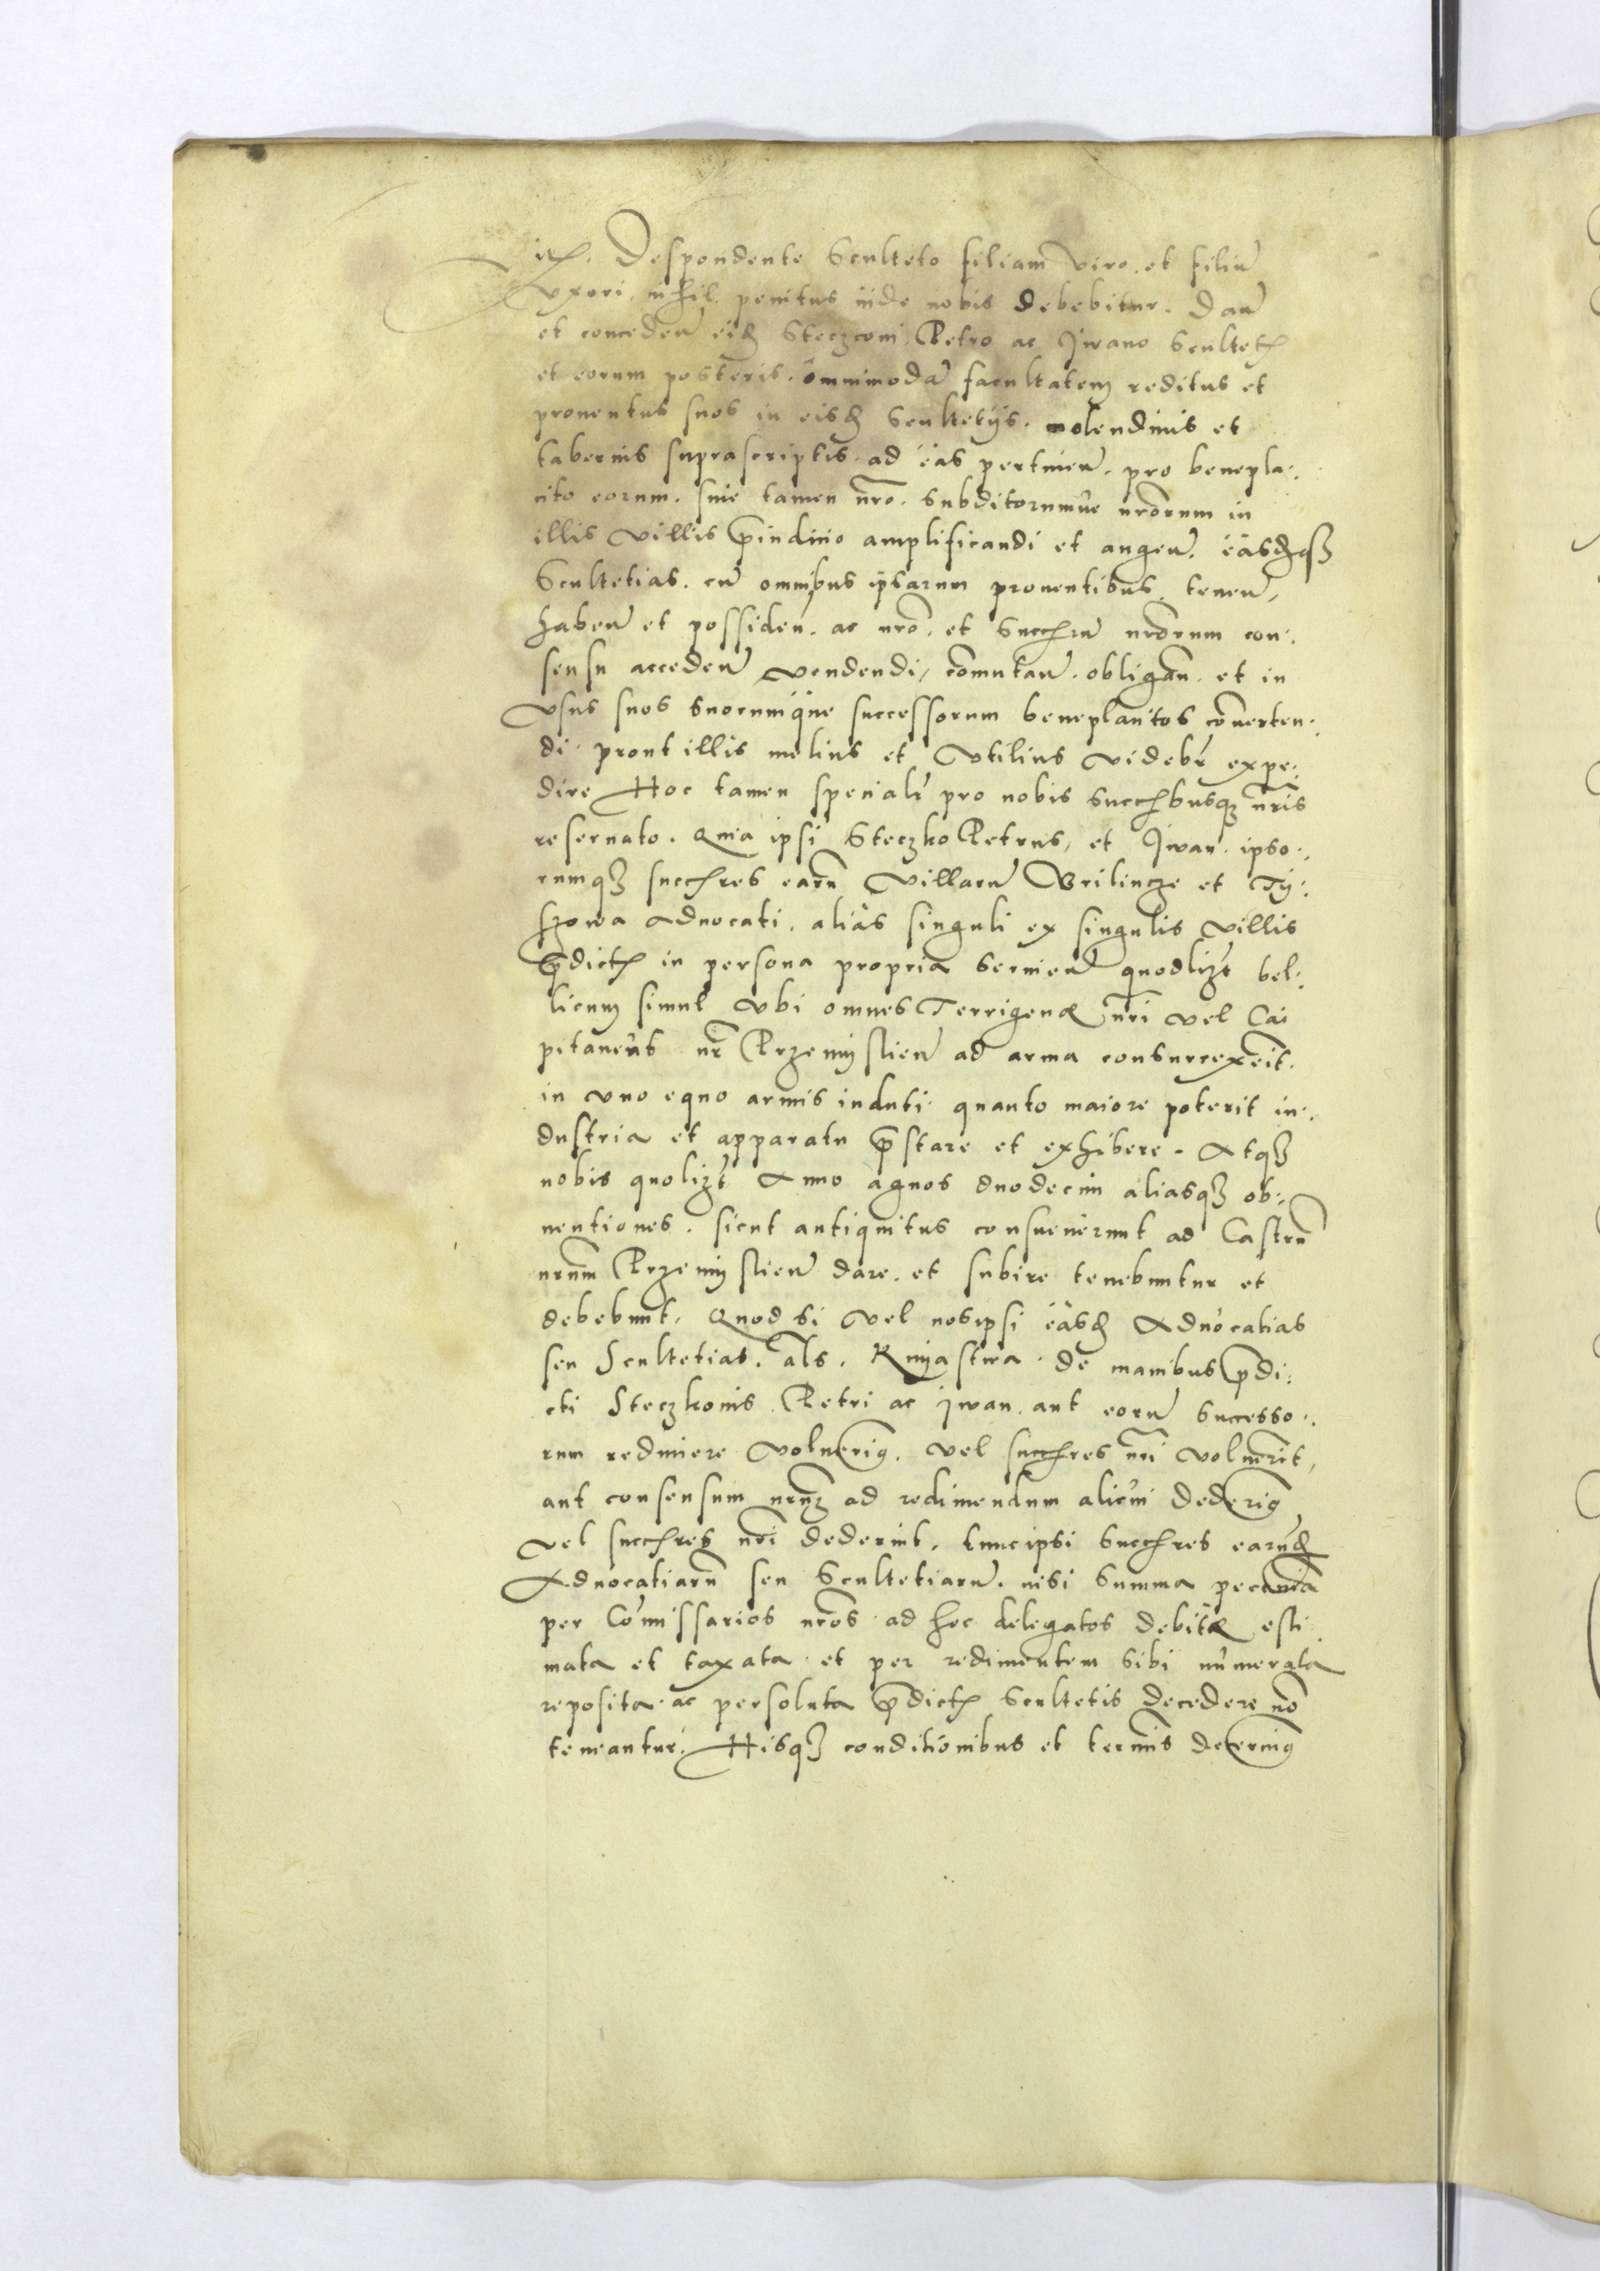 itꝭ. Despondente Sculteto filiam viro. et filiū
vxori. nihil penitus inde nobis debebitur. Dan̄
et conceden̄ eisdꝫ Steczconi. Petro ac Iwano Scultetꝭ
et eorum posteris. omnimodā facultatem reditus et
prouentus suos in eisdꝫ Scultetijs. molendinis et
tabernis suprascriptis. ad eas pertinen̄. pro benepla.,
cito eorum. sine tamen nr̄o. subditorumue nr̄orum in
illis villis p̄iudicio amplificandi et augen̄. easdꝫqꝫ
Scultetias. cū omnibus ipsarum prouentibus. tenen̄,
haben̄ et possiden̄. ac nr̄o. et Succꝭrū nr̄orum con.,
sensu acceden̄ vendendi, com̄utan̄. obligan̄. et in
vsus suos suorumque successorum beneplacitos cōuerten.,
di. prout illis melius et vtilius videbr̄ expe.,
dire Hoc tamen specialr̄ pro nobis succꝭbusqꝫ nr̄is
reseruato. Quia ipsi Steczko Petrus, et Iwan. ipso.,
rumqꝫ succꝭres earū villarū Vrilincze et Ty.,
szowa Aduocati. alias singuli ex singulis villis
p̄dictꝭ in persona propria seruien̄ quodlizt bel.,
licum simul vbi omnes Terrigenę nr̄i vel Cai
pitaneus nr̄ Przemyslien̄ ad arma consurrexerīt.
in vno equo armis induti. quanto maiore poterit in.,
dustria et apparatu p̄stare et exhibere. Atqꝫ
nobis quolizt Anno agnos duodecim aliasqꝫ ob.,
uentiones. sicut antiquitus consueuerunt ad Castrū
nr̄um Przemyslien̄ dare. et subire tenebuntur et
debebunt. Quod si vel nosipsi easdꝫ Aduocatias
seu Scultetias. als. Knyastwa. de manibus p̄di.,
cti Steczkonis. Petri ac Iwan. aut eorū Successo.,
rum redimere voluerimꝰ. vel succꝭres nr̄i voluerīt,
aut consensum nr̄um ad redimendum alicui dederimꝰ
vel succꝭres nr̄i dederint. tunc ipsi succꝭres earūdꝫ
Aduocatiarū seu Scultetiarū. nisi summa pecunia
per Com̄issarios nr̄os ad hoc delegatos debitę esti.
mata et taxata. et per redimentem sibi numerata
reposita. ac persoluta p̄dictꝭ Scultetis decedere nō
teneantur. Hisqꝫ conditionibus et termīs decernimꝰ